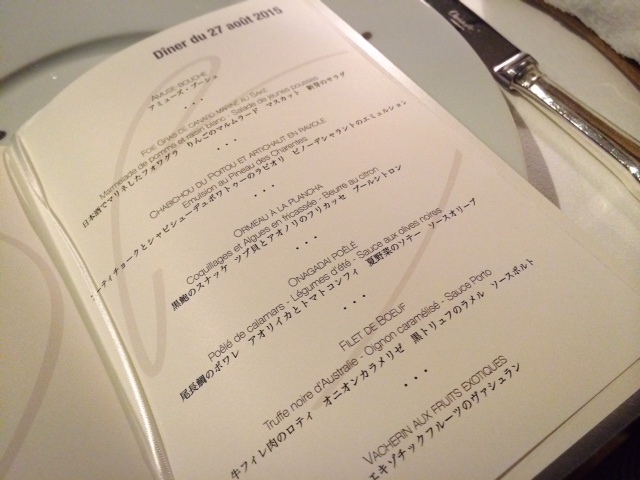 Dîner du 27 août 2015
AMUSE BOUCHE
アミューズ・ブーシュ
• • •
FOIE GRAS DE CANARD MARINÉ AU SAKÉ
Marmelade de pomme et raisin blanc - Salade de jeunes pousses
日本酒でマリネしたフォワグラ りんごのマルムラード マスカット 新芽のサラダ
• • •
CHABICHOU DU POITOU ET ARTICHAUT EN RAVIOLE
Emulsion au Pineau des Charentes
ーティチョークとシャビシューデュポワトゥーのラビオリ ピノーデシャラントのエミュルション
• • •
ORMEAU À LA PLANCHA
Coquillages et Algues en fricassée - Beurre au citron
黒鮑のスナッケ ツブ貝とアオノリのフリカッセ ブールシトロン
• • •
ONAGADAÏ POÊLÉ
Poêlé de calamars - Légumes d'été - Sauce aux olives noires
尾長鯛のポワレ アオリイカとトマトコンフィ 夏野菜のソテー ソースオリーブ
• • •
FILET DE BOEUF
Truffe noire d'Australie - Oignon caramélisé - Sauce Porto
牛フィレ肉のロティ オニオンカラメリゼ 黒トリュフのラメル ソースポルト
• • •
VACHERIN AUX FRUITS EXOTIQUES
エキゾチックフルーツのヴァシュラン